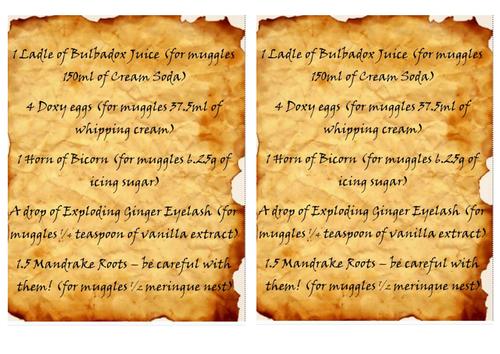 1 Ladle of Bulbadox Juice (for muggles
150ml of Cream Soda)
4 Doxy eggs (for muggles 37.5ml of
whipping cream)
1 Horn of Bicorn (for muggles 6.25g of
icing sugar)
A drop of Exploding Ginger Eyelash (for
muggles ¼ teaspoon of vanilla extract)
1.5 Mandrake Roots – be careful with
them! (for muggles ½ meringue nest)
1 Ladle of Bulbadox Juice (for muggles
150ml of Cream Soda)
4 Doxy eggs (for muggles 37.5ml of
whipping cream)
1 Horn of Bicorn (for muggles 6.25g of
icing sugar)
A drop of Exploding Ginger Eyelash (for
muggles ¼ teaspoon of vanilla extract)
1.5 Mandrake Roots – be careful with
them! (for muggles ½ meringue nest)